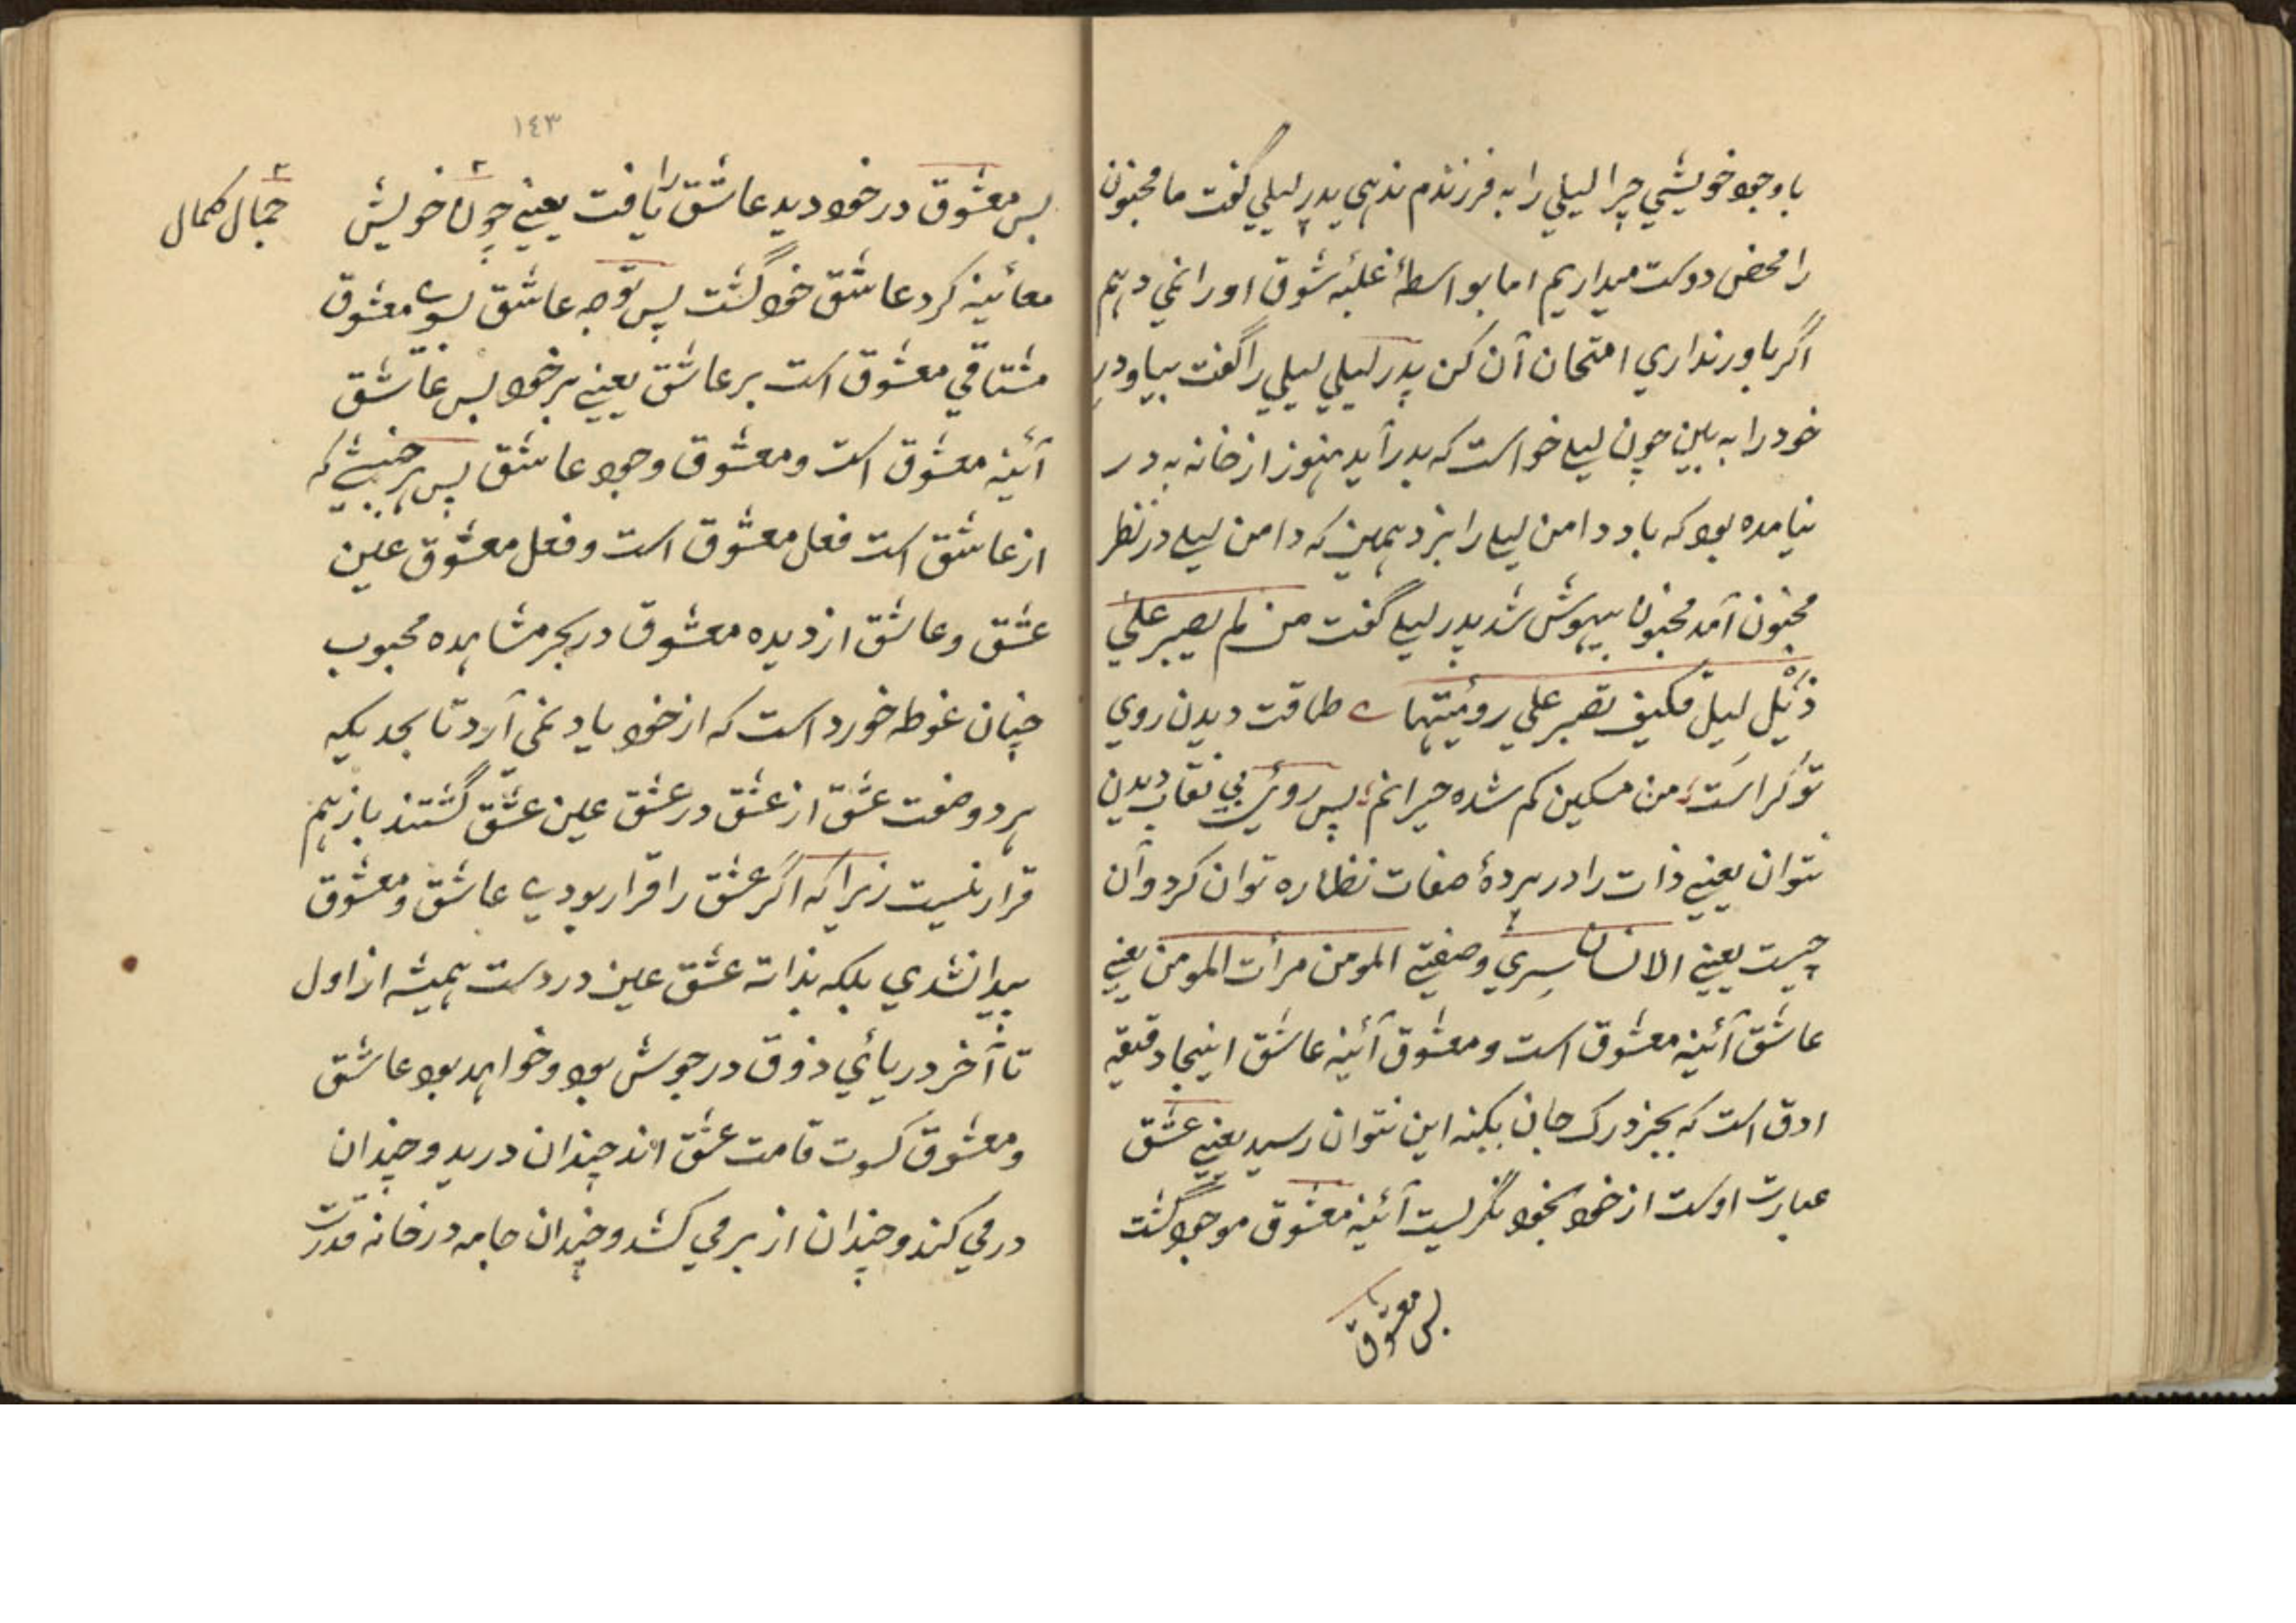 با وجود خویشي چرا لیلي را به فرزندم ندهي پدر لیلي گفت ما مجنون
را محض دوست میداریم اما بواسطهٔ غلبهٔ شوق او را نمي دهم
اگر باور نداري امتحان آن کن پدر لیلي لیلي را گفت بیا و در
خود را به بین چون لیلے خواست که بدر آید هنوز از خانه به در
نیامده بود که باد دامن لیلے را بزد همین که دامن لیلے در نظر
مجنون آمد مجنون بیهوش شد پدر لیلے گفت من لم یصبر علي
ذیل لیل فکیف تصبر علي رویتها طاقت دیدن روي
تو کراست من مسکین کم شده حیرانم پس روئے بي نقاب دیدن
نتوان یعنے ذات را در پردهٔ صفات نظاره توان کرد و آن
چیست یعنے الانسان سري وصفتے المومن مرأت المومن یعنے
عاشق آئینه معشوق است و معشوق آئینه عاشق اینجا دقیقه
ادق است که بجز درک جان بکنه این نتوان رسید یعنے عشق
عبارت اوست از خود بخود نگریست آئینه معشوق موجود گشت
پس معشوق
١٤٣
پس معشوق در خود دید عاشق را یافت یعنے چون خویش
جمال کمال
معائینه کرد عاشق خود گشت پس توجه عاشق بسوے معشوق
مشتاقي معشوق است بر عاشق یعنے بر خود پس عاشق
آئینه معشوق است و معشوق وجود عاشق پس هر که
از عاشق است فعل معشوق است و فعل معشوق عین
عشق و عاشق از دیده معشوق در بحر مشاهده محبوب
چنان غوطه خورد است که از خود یاد نمي آرد تا بحدیکه
هر دو صفت عشق از عشق در عشق عین عشق گشتند باز هم
قرار نیست زیرا که اگر عشق را قرار بودے عاشق و معشوق
پیدا نشدي بلکه بذاته عشق عین دردست همیشه از اول
تا آخر دریائي ذوق در جوش بود و خواهد بود عاشق
و معشوق کسوت قامت عشق اند چندان درید و چندان
در مي کند و چندان از بر مي کشد و چندان جامه در خانه قدرت